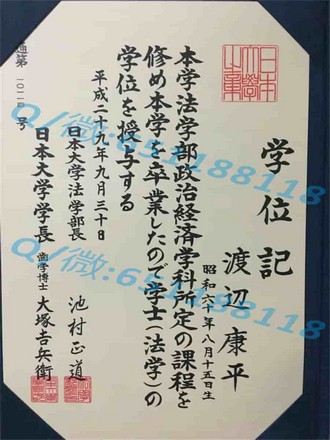 学位記
渡辺康平
昭和六十年八月十五日生
本学法学部政治経済学科所定の課程を
修め本学を卒業したので学士(法学)の
学位を授与する
平成二十九年九月三十日
日本大学法学部長 池村正道
日本大学学長 歯学博士 大塚吉兵衛
第 号
Q/微:
Q/微: